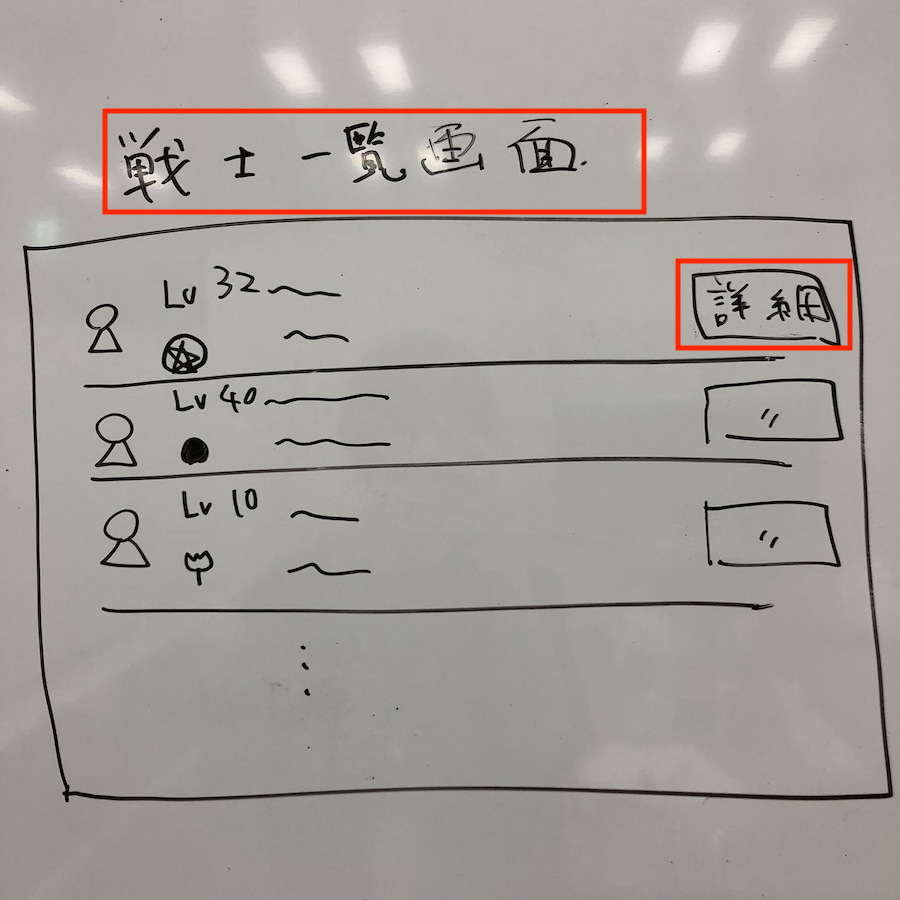 戦士一覧画面
Lv 32
詳細
Lv 40
〃
Lv 10
〃